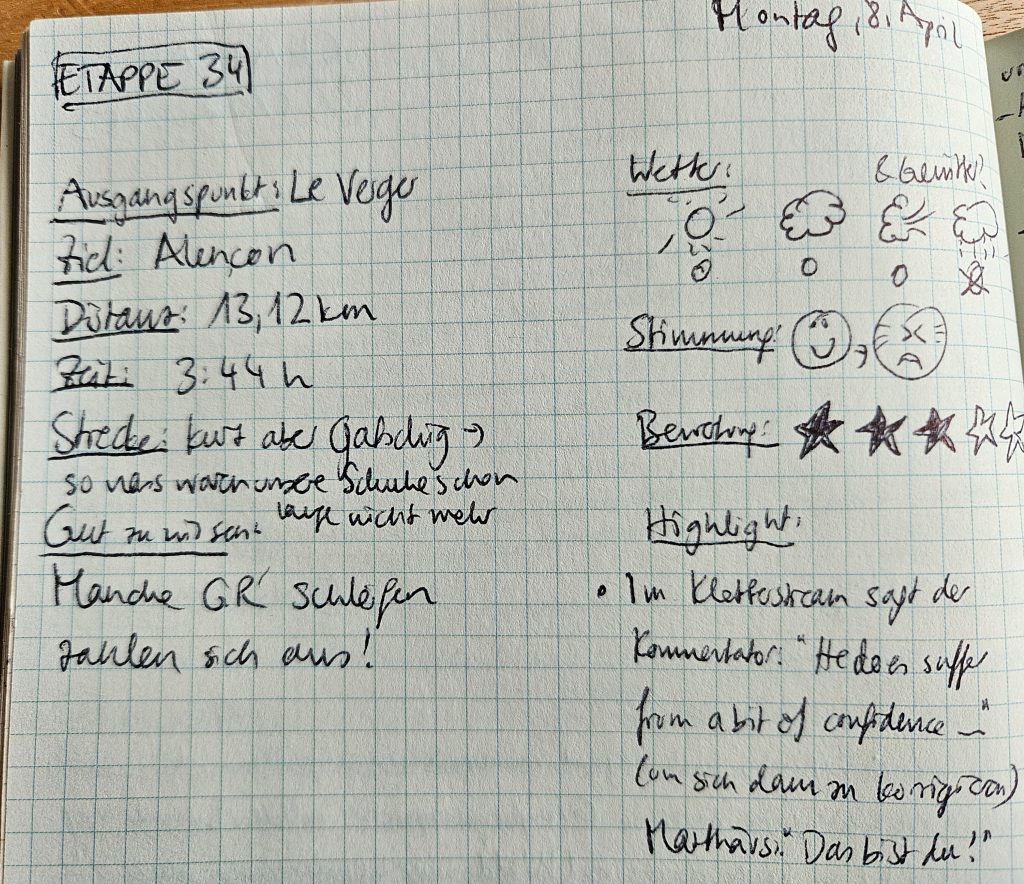 Montag, 8. April
ETAPPE 34
Ausgangspunkt: Le Verger
Ziel: Alençon
Distanz: 13,12 km
Zeit: 3:44 h
Strecke: kurz aber Gatschig →
so nass waren unsere Schuhe schon
lange nicht mehr
Gut zu wissen:
Manche GR schleifen
zahlen sich aus!
Wetter: & Gewitter?
Stimmung:
Bewertung:
Highlight:
• Im Kletterstream sagt der
Kommentator: "He does suffer
from a bit of confidence ..."
(um sich dann zu korrigieren)
Matthäus: "Das bist du!"